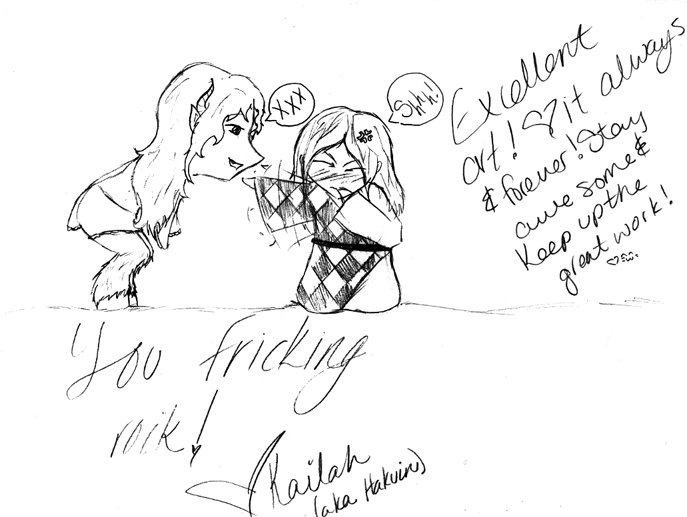 XXX
Shh!
Excellent
art! ♡ it always
& forever! Stay
awesome &
Keep up the
great work!
You fricking
rock!
Kailah
(aka Hakuirus)